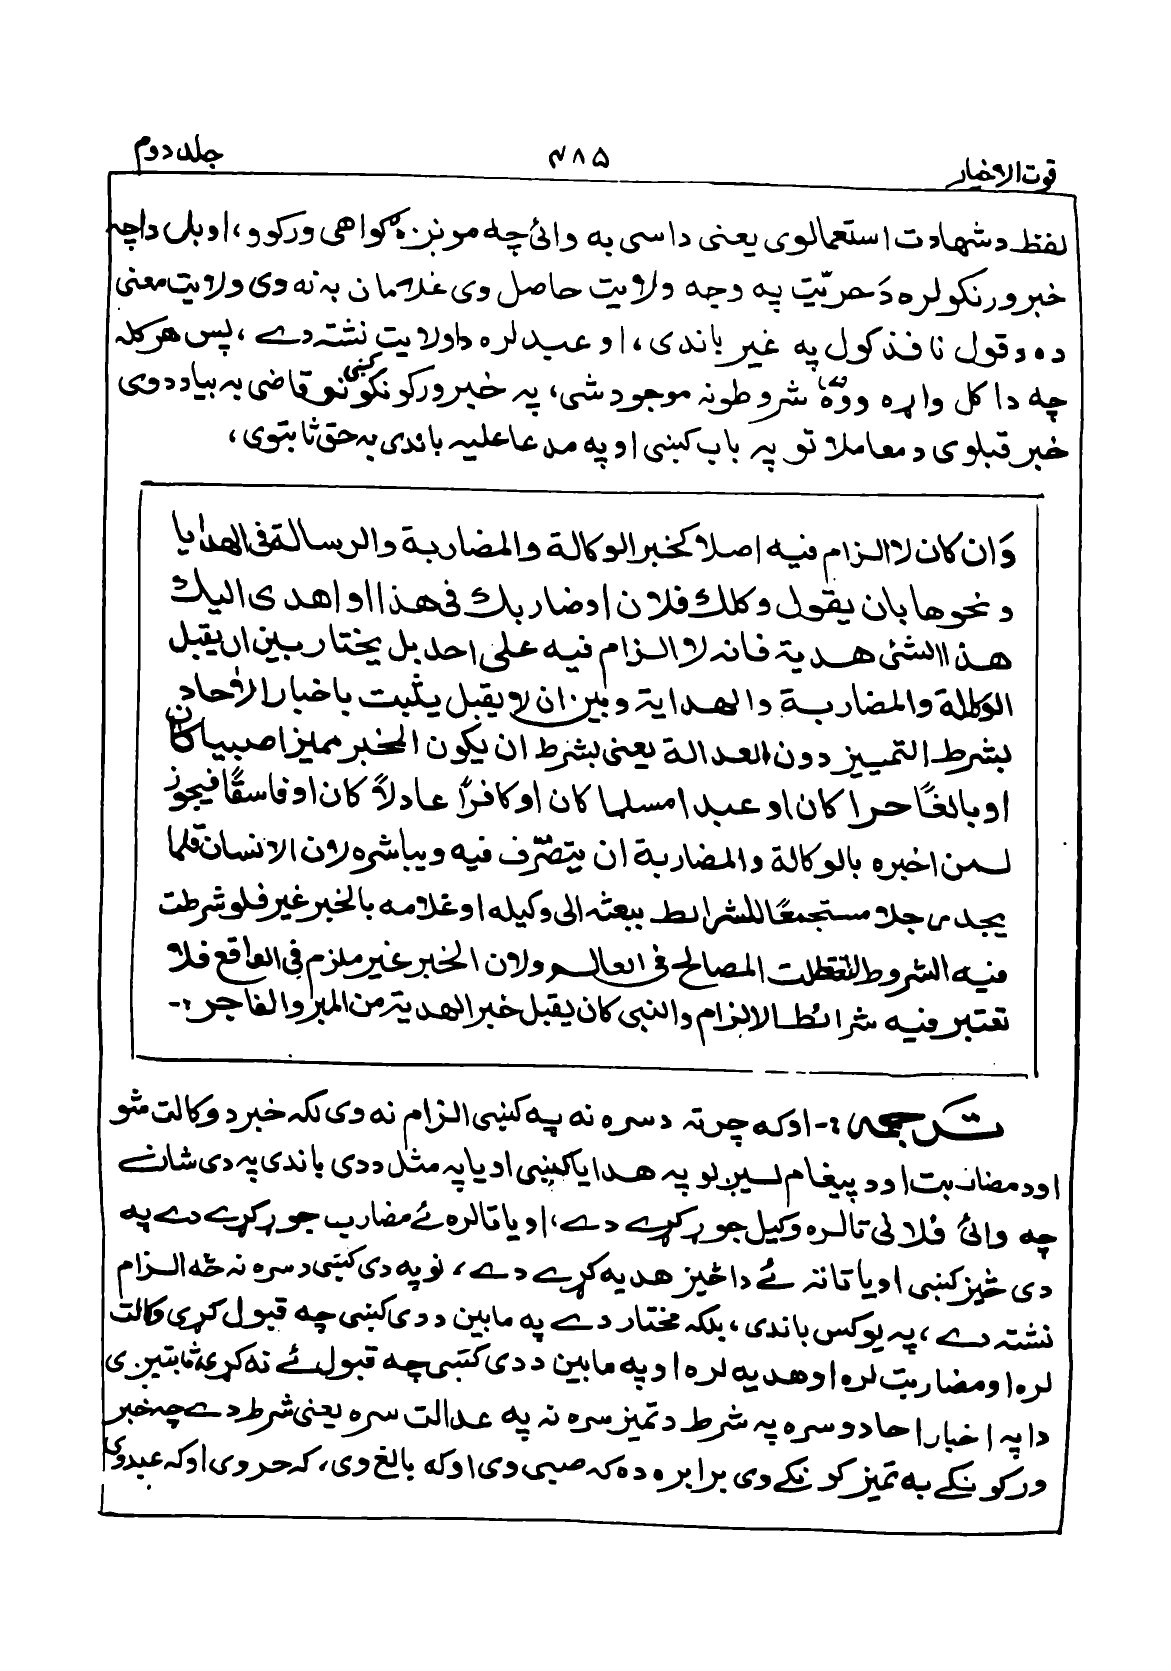 قوت الاخیار ۴۸۵ جلد دوم
لفظ د شهادت استعمالوی یعنی داسی به وائی چه مونږه ګواهی ورکوو، او بل داچه
خبر ورنکو لره دَ حریّت په وجه ولایت حاصل وی غلامان به نه وی ولایت معنی
ده د قول نافذ کول په غیر باندی، او عبد لره داولایت نشته دے، پس هرکله
چه دا کل واړه شروطونه موجود شی، په خبر ورکونکو کنبی نو قاضی به بیا ددوی
خبر قبلوی د معاملاتو په باب کنبی او په مدعا علیه باندی به حق ثابتوی،
وَان کان لا الزام فیه اصلا کخبر الوکالة والمضاربة والرسالة فی الهدایا
و نحوها بان یقول وکلك فلان او ضاربك فی هذا او اهدی الیك
هذا الشئ هدیة فانه لا الزام فیه علی احد بل یختار بین ان یقبل
الوکالة والمضاربة والهدایة و بین ان لا یقبل یثبت باخبار الاٰحاد
بشرط التمییز دون العدالة یعنی بشرط ان یکون المخبر ممیزا صبیا کان
او بالغًا حرا کان او عبدا مسلما کان او کافراً عادلاً کان او فاسقًا فیجوز
لمن اخبره بالوکالة والمضاربة ان یتصرّف فیه ویباشره لان الانسان قلما
یجد رجلا مستجمعًا للشرائط یبعثه الی وکیله او غلامه بالخبر غیر فلو شرطت
فیه الشروط لتعطلت المصالح فی العالم ولان الخبر غیر ملزم فی الواقع فلا
تعتبر فیه شرائط الالزام والنبی کان یقبل خبر الهدیة من البر والفاجر :-
ترجمه :- اوکه چرته دسره نه په کنبی الزام نه وی لکه خبر د وکالت شو
او د مضاربت او د پیغام لسیږلو په هدایا کنبی او یا په مثل ددی باندی په دی شان ے
چه وائی فلانی تا لره وکیل جوړ کړے دے، او یا تا لره ئے مضارب جوړ کړے دے په
دی څیز کنبی او یا تا ته ئے دا څیز هدیه کړے دے، نو په دی کنبی دسره نه څه الزام
نشته دے، په یوکس باندی، بلکه مختار دے په مابین ددی کنبی چه قبول کری وکالت
لره او مضاربت لره او هدیه لره او په مابین ددی کنبی چه قبول ئے نه کړی، ثابتیږی
دا په اخبار احادو سره په شرط د تمیز سره نه په عدالت سره یعنی شرط دے چه خبر
ورکونکے به تمیز کونکے وی برابره ده که صبی وی اوکه بالغ وی، که حر وی اوکه عبد وی